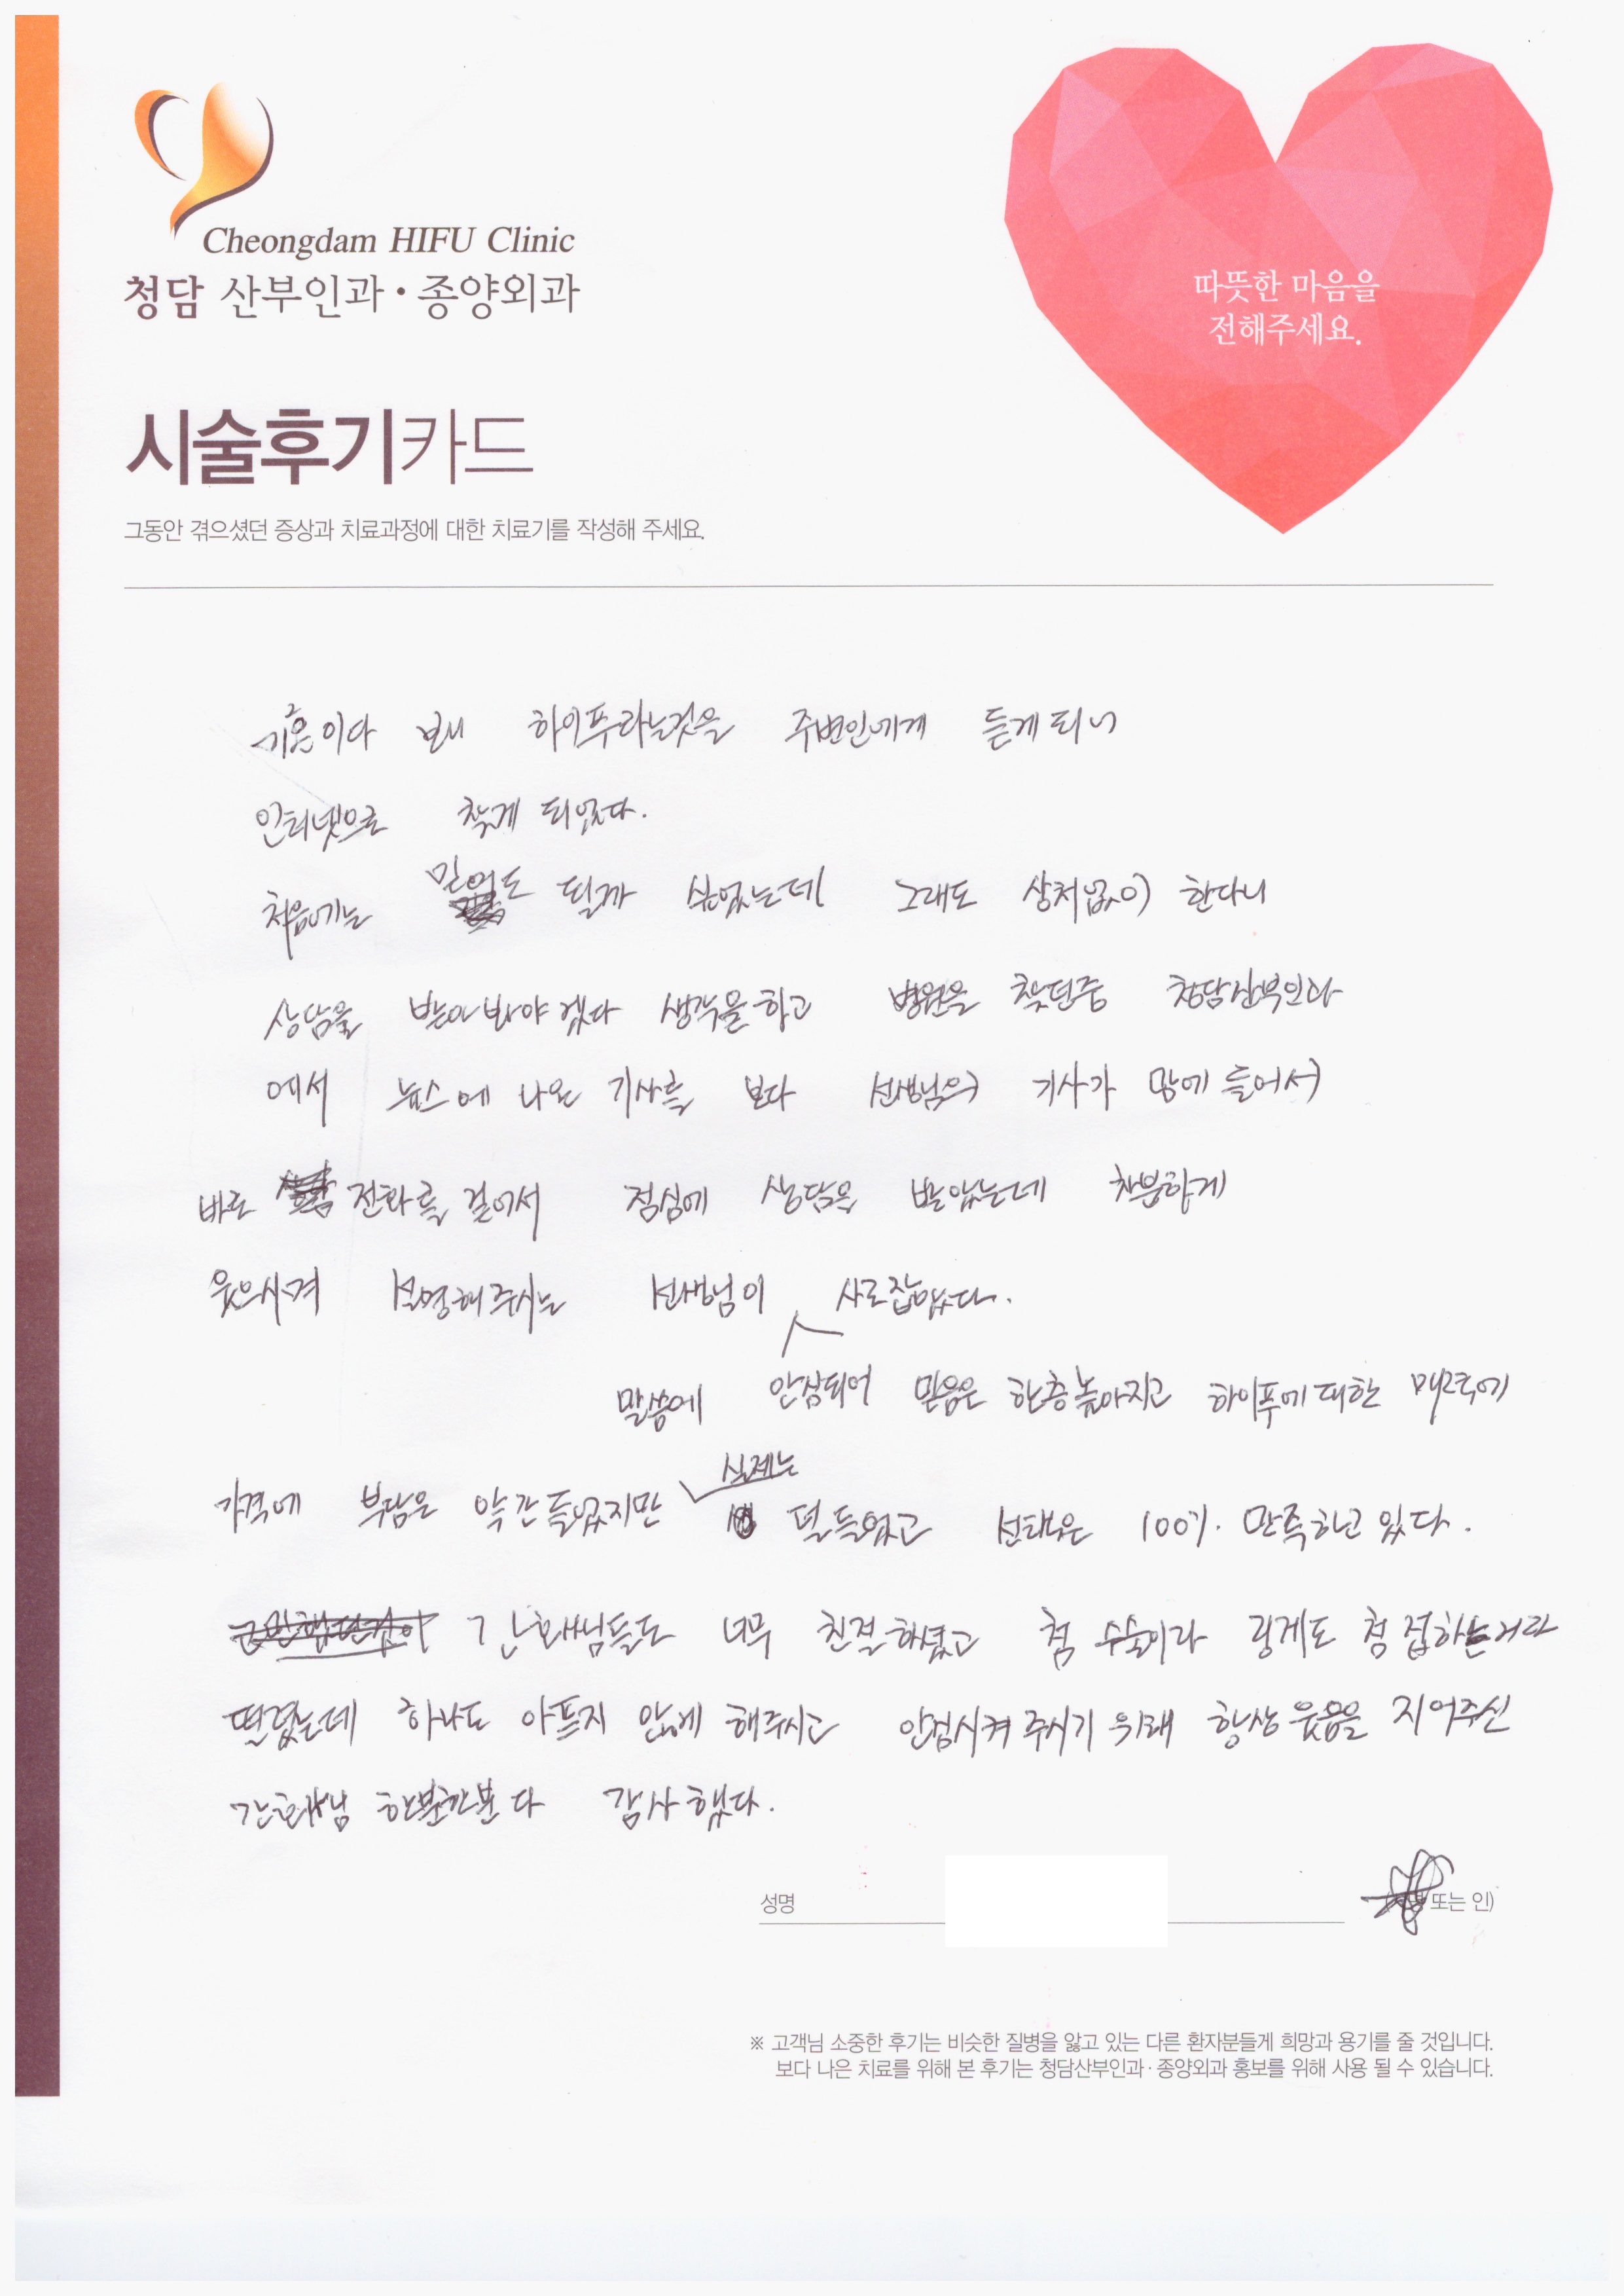 Cheongdam HIFU Clinic
청담 산부인과·종양외과
따뜻한 마음을
전해주세요.
시술후기카드
그동안 겪으셨던 증상과 치료과정에 대한 치료기를 작성해 주세요.
기혼이다 보니 하이푸라는것을 주변인에게 듣게되니
인터넷으로 찾게 되었다.
처음에는 믿어도 될까 싶었는데 그래도 상처없이 한다니
상담을 받아봐야겠다 생각을하고 병원을 찾던중 청담산부인과
에서 뉴스에 나온 기사를 보다 선생님의 기사가 맘에 들어서
바로 전화를 걸어서 점심에 상담을 받았는데 차분하게
웃으시며 설명해주시는 선생님이 사로잡았다.
말씀에 안심되어 믿음은 한층높아지고 하이푸에대한 매력에
가격에 부담은 약간들었지만 실제는 덜들었고 선택은 100%. 만족하고있다.
간호사님들도 너무 친절하셨고 첨 수술이라 링게도 첨 접하는거라
떨렸는데 하나도 아프지 않게 해주시고 안심시켜 주시기 위해 항상 웃음을 지어주신
간호사님 한분한분 다 감사했다.
성명
또는 인)
※ 고객님 소중한 후기는 비슷한 질병을 앓고 있는 다른 환자분들게 희망과 용기를 줄 것입니다.
보다 나은 치료를 위해 본 후기는 청담산부인과·종양외과 홍보를 위해 사용 될 수 있습니다.